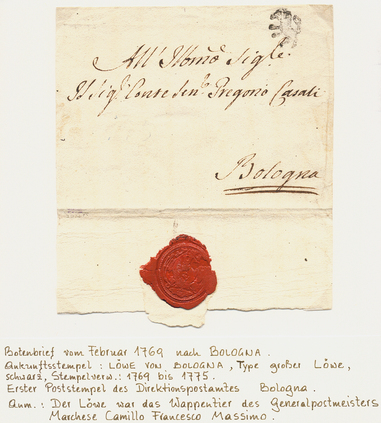 All' Illmõ Sigle.
Il Sigr. Conte Senre. Gregorio Casali
Bologna
Botenbrief vom Februar 1769 nach BOLOGNA.
Ankunftsstempel: LÖWE VON BOLOGNA, Type großer Löwe,
schwarz, Stempelverw.: 1769 bis 1775.
Erster Poststempel des Direktionspostamtes Bologna.
Anm.: Der Löwe war das Wappentier des Generalpostmeisters
Marchese Camillo Francesco Massimo.